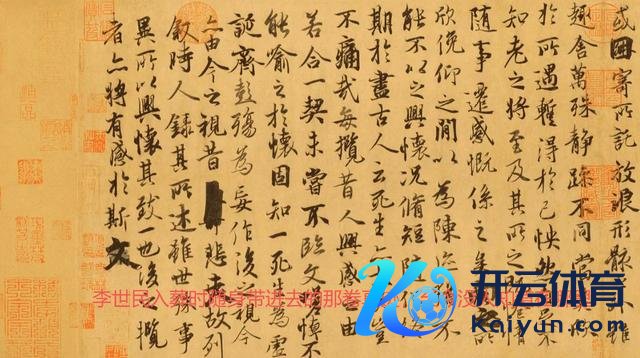 或因寄所託放浪形骸之外雖
趣舍萬殊靜躁不同當其欣
於所遇暫得於己怏然自足不
知老之將至及其所之既惓情
隨事遷感慨係之矣
欣俛仰之閒以為陳迹猶不
能不以之興懷況脩短隨化
期於盡古人云死生亦大矣豈
不痛哉每攬昔人興感之由
若合一契未嘗不臨文嗟悼不
能喻之於懷固知一死生為虛
誕齊彭殤為妄作後之視今
亦由今之視昔悲夫故列
敘時人錄其所述雖世殊事
異所以興懷其致一也後之攬
者亦將有感於斯文
李世民入葬时随身带进去的那卷
开云体育
Kaiyun.com